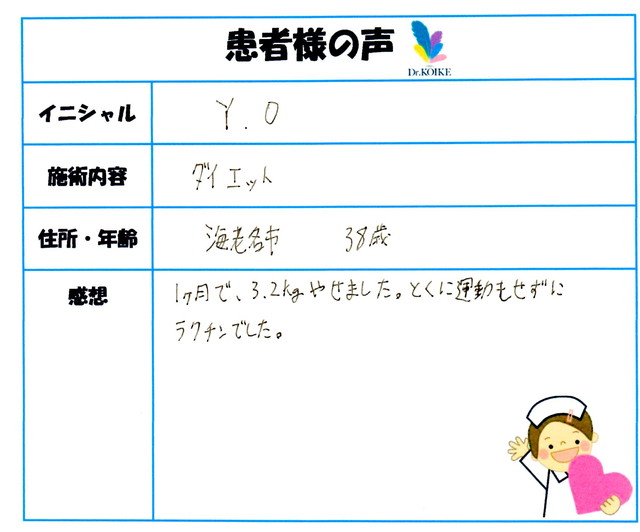 患者様の声
Dr.KOIKE
イニシャル Y.O
施術内容 ダイエット
住所・年齢 海老名市 38歳
感想 1ヶ月で、3.2kgやせました。とくに運動もせずに
ラクチンでした。